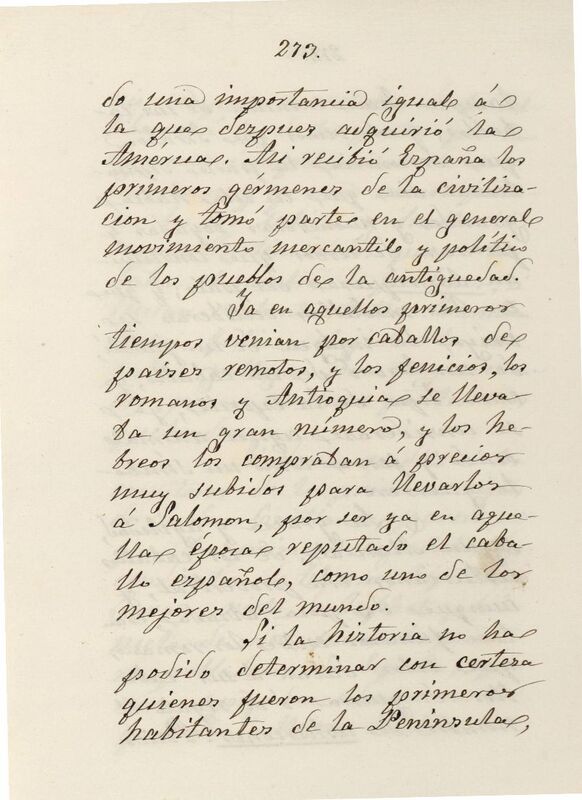 273.
do una importancia igual á
la que despues adquirió la
América. Asi recibió España los
primeros gérmenes de la civiliza-
cion y tomó parte en el general
movimiento mercantil y político
de los pueblos de la antiguedad.
Ya en aquellos primeros
tiempos venian por caballos de
paises remotos, y los fenicios, los
romanos y Antioquia se lleva-
ba un gran número, y los he-
breos los compraban á precios
muy subidos para llevarlos
á Salomon, por ser ya en aque-
lla época reputado el caba-
llo español, como uno de los
mejores del mundo.
Si la historia no ha
podido determinar con certeza
quienes fueron los primeros
habitantes de la Peninsula,